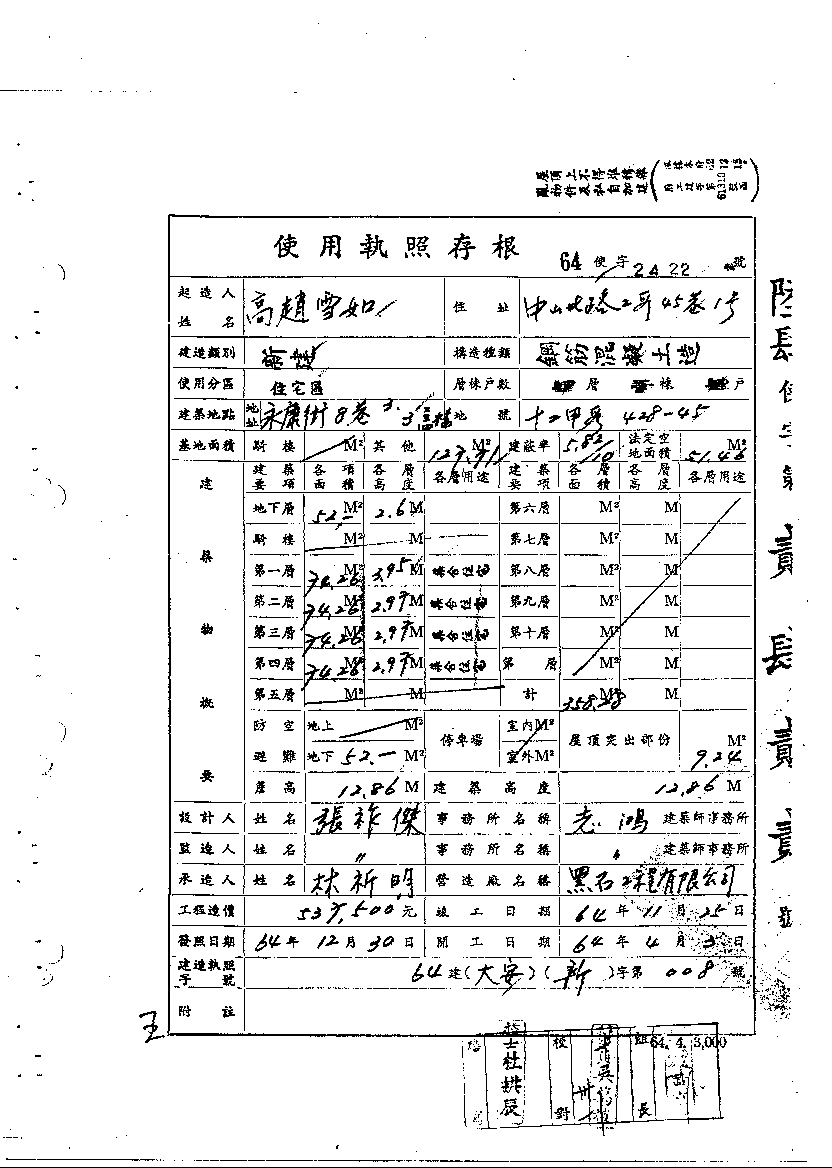 屋頂上不得堆積雜
亂物件及私自加建
使用執照存根
64 使字 2422 號
起造人姓名 高趙雪如 住址 中山北路2段45巷1號
建造類別 新建 構造種類 鋼筋混凝土造
使用分區 住宅區 層棟戶數 層 棟 戶
建築地點 地址 永康街8巷 地號 十二甲段 428-45
基地面積 騎樓 M² 其他 M² 建蔽率 5.82/10 法定空地面積 51.46 M²
建築要項 各項面積 各層高度 各層用途 建築要項 各層面積 各層高度 各層用途
建築物概要
地下層 52.- M² 2.6 M 第六層 M² M
騎樓 M² M 第七層 M² M
第一層 74.26 M² 3.95 M 集合住宅 第八層 M² M
第二層 74.26 M² 2.97 M 集合住宅 第九層 M² M
第三層 74.26 M² 2.97 M 集合住宅 第十層 M² M
第四層 74.26 M² 2.97 M 集合住宅 第 層 M² M
第五層 M² M 計 M² M
防空避難 地上 M² 地下 52.- M² 停車場 室內M² 室外M² 屋頂突出部份 9.24 M²
簷高 12.86 M 建築高度 12.86 M
設計人 姓名 張祚傑 事務所名稱 志鴻 建築師事務所
監造人 姓名 〃 事務所名稱 〃 建築師事務所
承造人 姓名 林祈明 營造廠名稱 黑石工程有限公司
工程造價 537,500元 竣工日期 64年11月25日
發照日期 64年12月30日 開工日期 64年4月3日
建造執照字號 64建(大安)(新)字第008號
附註
陸肆使字第貳肆貳貳號
技士杜拱辰
校對
組長
64. 4. 3,000